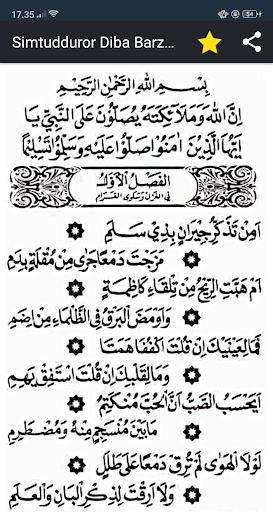 17.35
54
Simtudduror Diba Barz...
بِسْمِ اللهِ الرَّحْمٰنِ الرَّحِيْمِ
اِنَّ اللهَ وَمَلَآئِكَتَهُ يُصَلُّوْنَ عَلَى النَّبِيِّ يَا
اَيُّهَا الَّذِيْنَ اٰمَنُوْا صَلُّوْا عَلَيْهِ وَسَلِّمُوْا تَسْلِيْمًا
اَلْفَصْلُ الْاَوَّلُ
فِي الْغَزَلِ وَشَكْوَى الْغَرَامِ
اَمِنْ تَذَكُّرِ جِيْرَانٍ بِذِيْ سَلَمِ
مَزَجْتَ دَمْعًا جَرٰى مِنْ مُقْلَةٍ بِدَمِ
اَمْ هَبَّتِ الرِّيْحُ مِنْ تِلْقَاءِ كَاظِمَةٍ
وَاَوْمَضَ الْبَرْقُ فِي الظَّلْمَاءِ مِنْ اِضَمِ
فَمَا لِعَيْنَيْكَ اِنْ قُلْتَ اكْفُفَا هَمَتَا
وَمَا لِقَلْبِكَ اِنْ قُلْتَ اسْتَفِقْ يَهِمِ
اَيَحْسَبُ الصَّبُّ اَنَّ الْحُبَّ مُنْكَتِمٌ
مَا بَيْنَ مُنْسَجِمٍ مِنْهُ وَمُضْطَرِمِ
لَوْلَا الْهَوٰى لَمْ تُرِقْ دَمْعًا عَلٰى طَلَلٍ
وَلَا اَرِقْتَ لِذِكْرِ الْبَانِ وَالْعَلَمِ